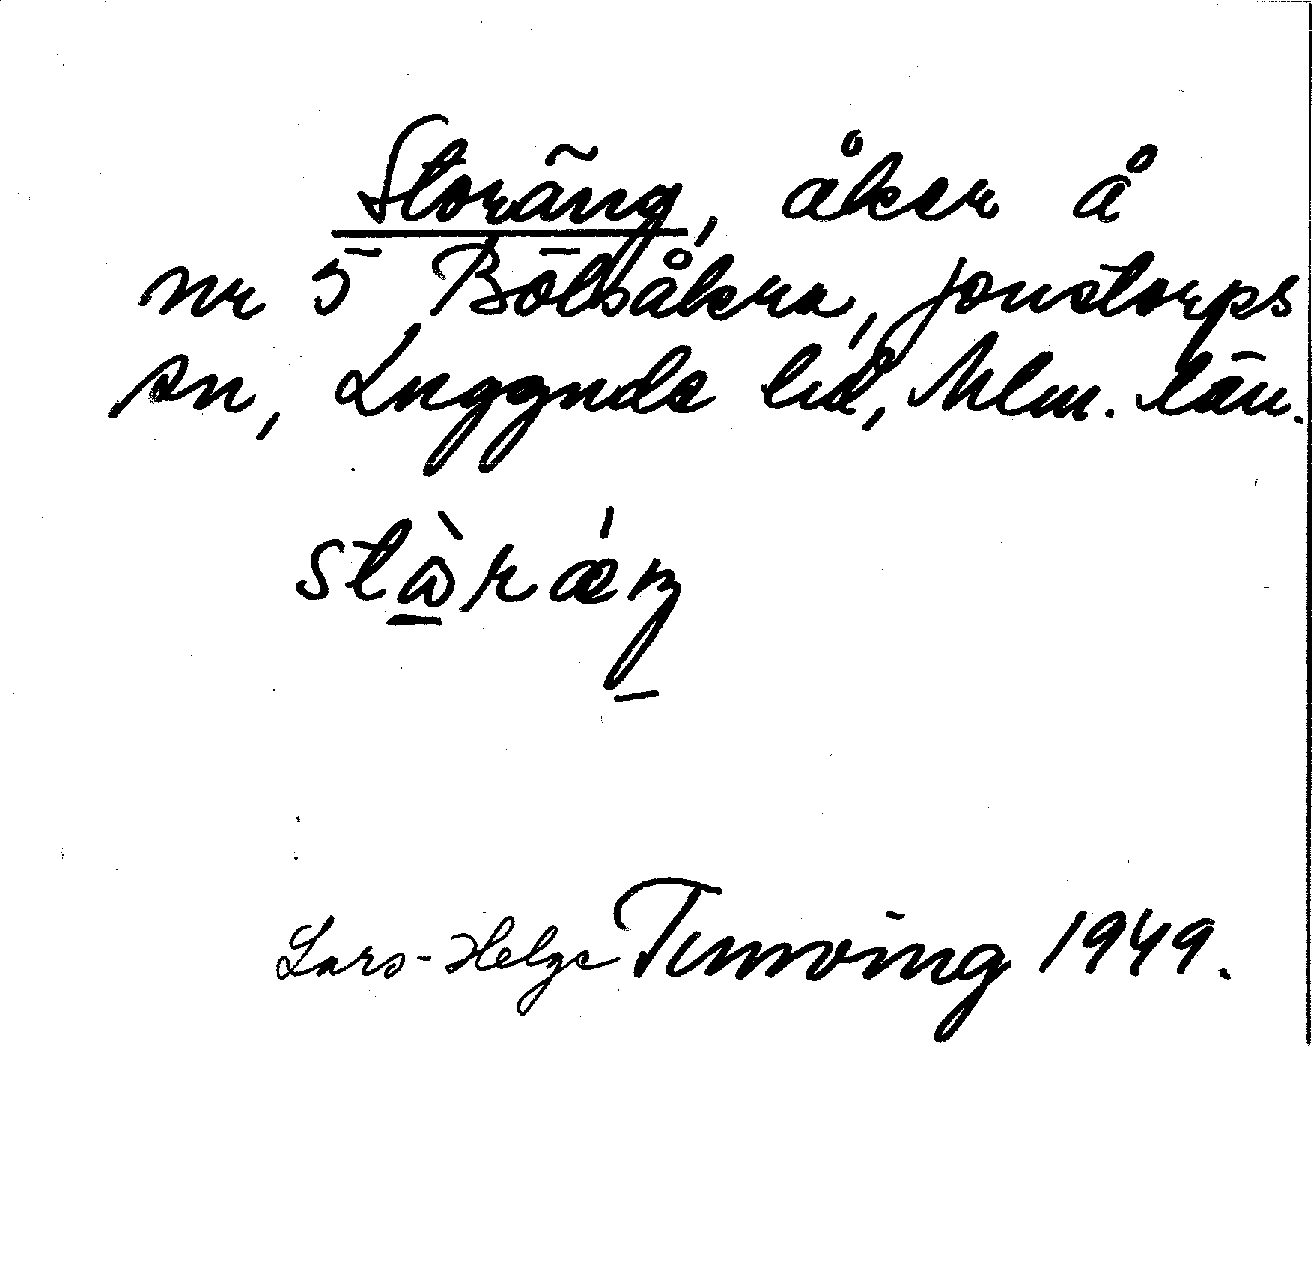 Storäng, åker å
nr 5 Bölsåkra, Jonstorps
sn, Luggude hd, Mlm. län.
Lars-Helge Turnving 1949.